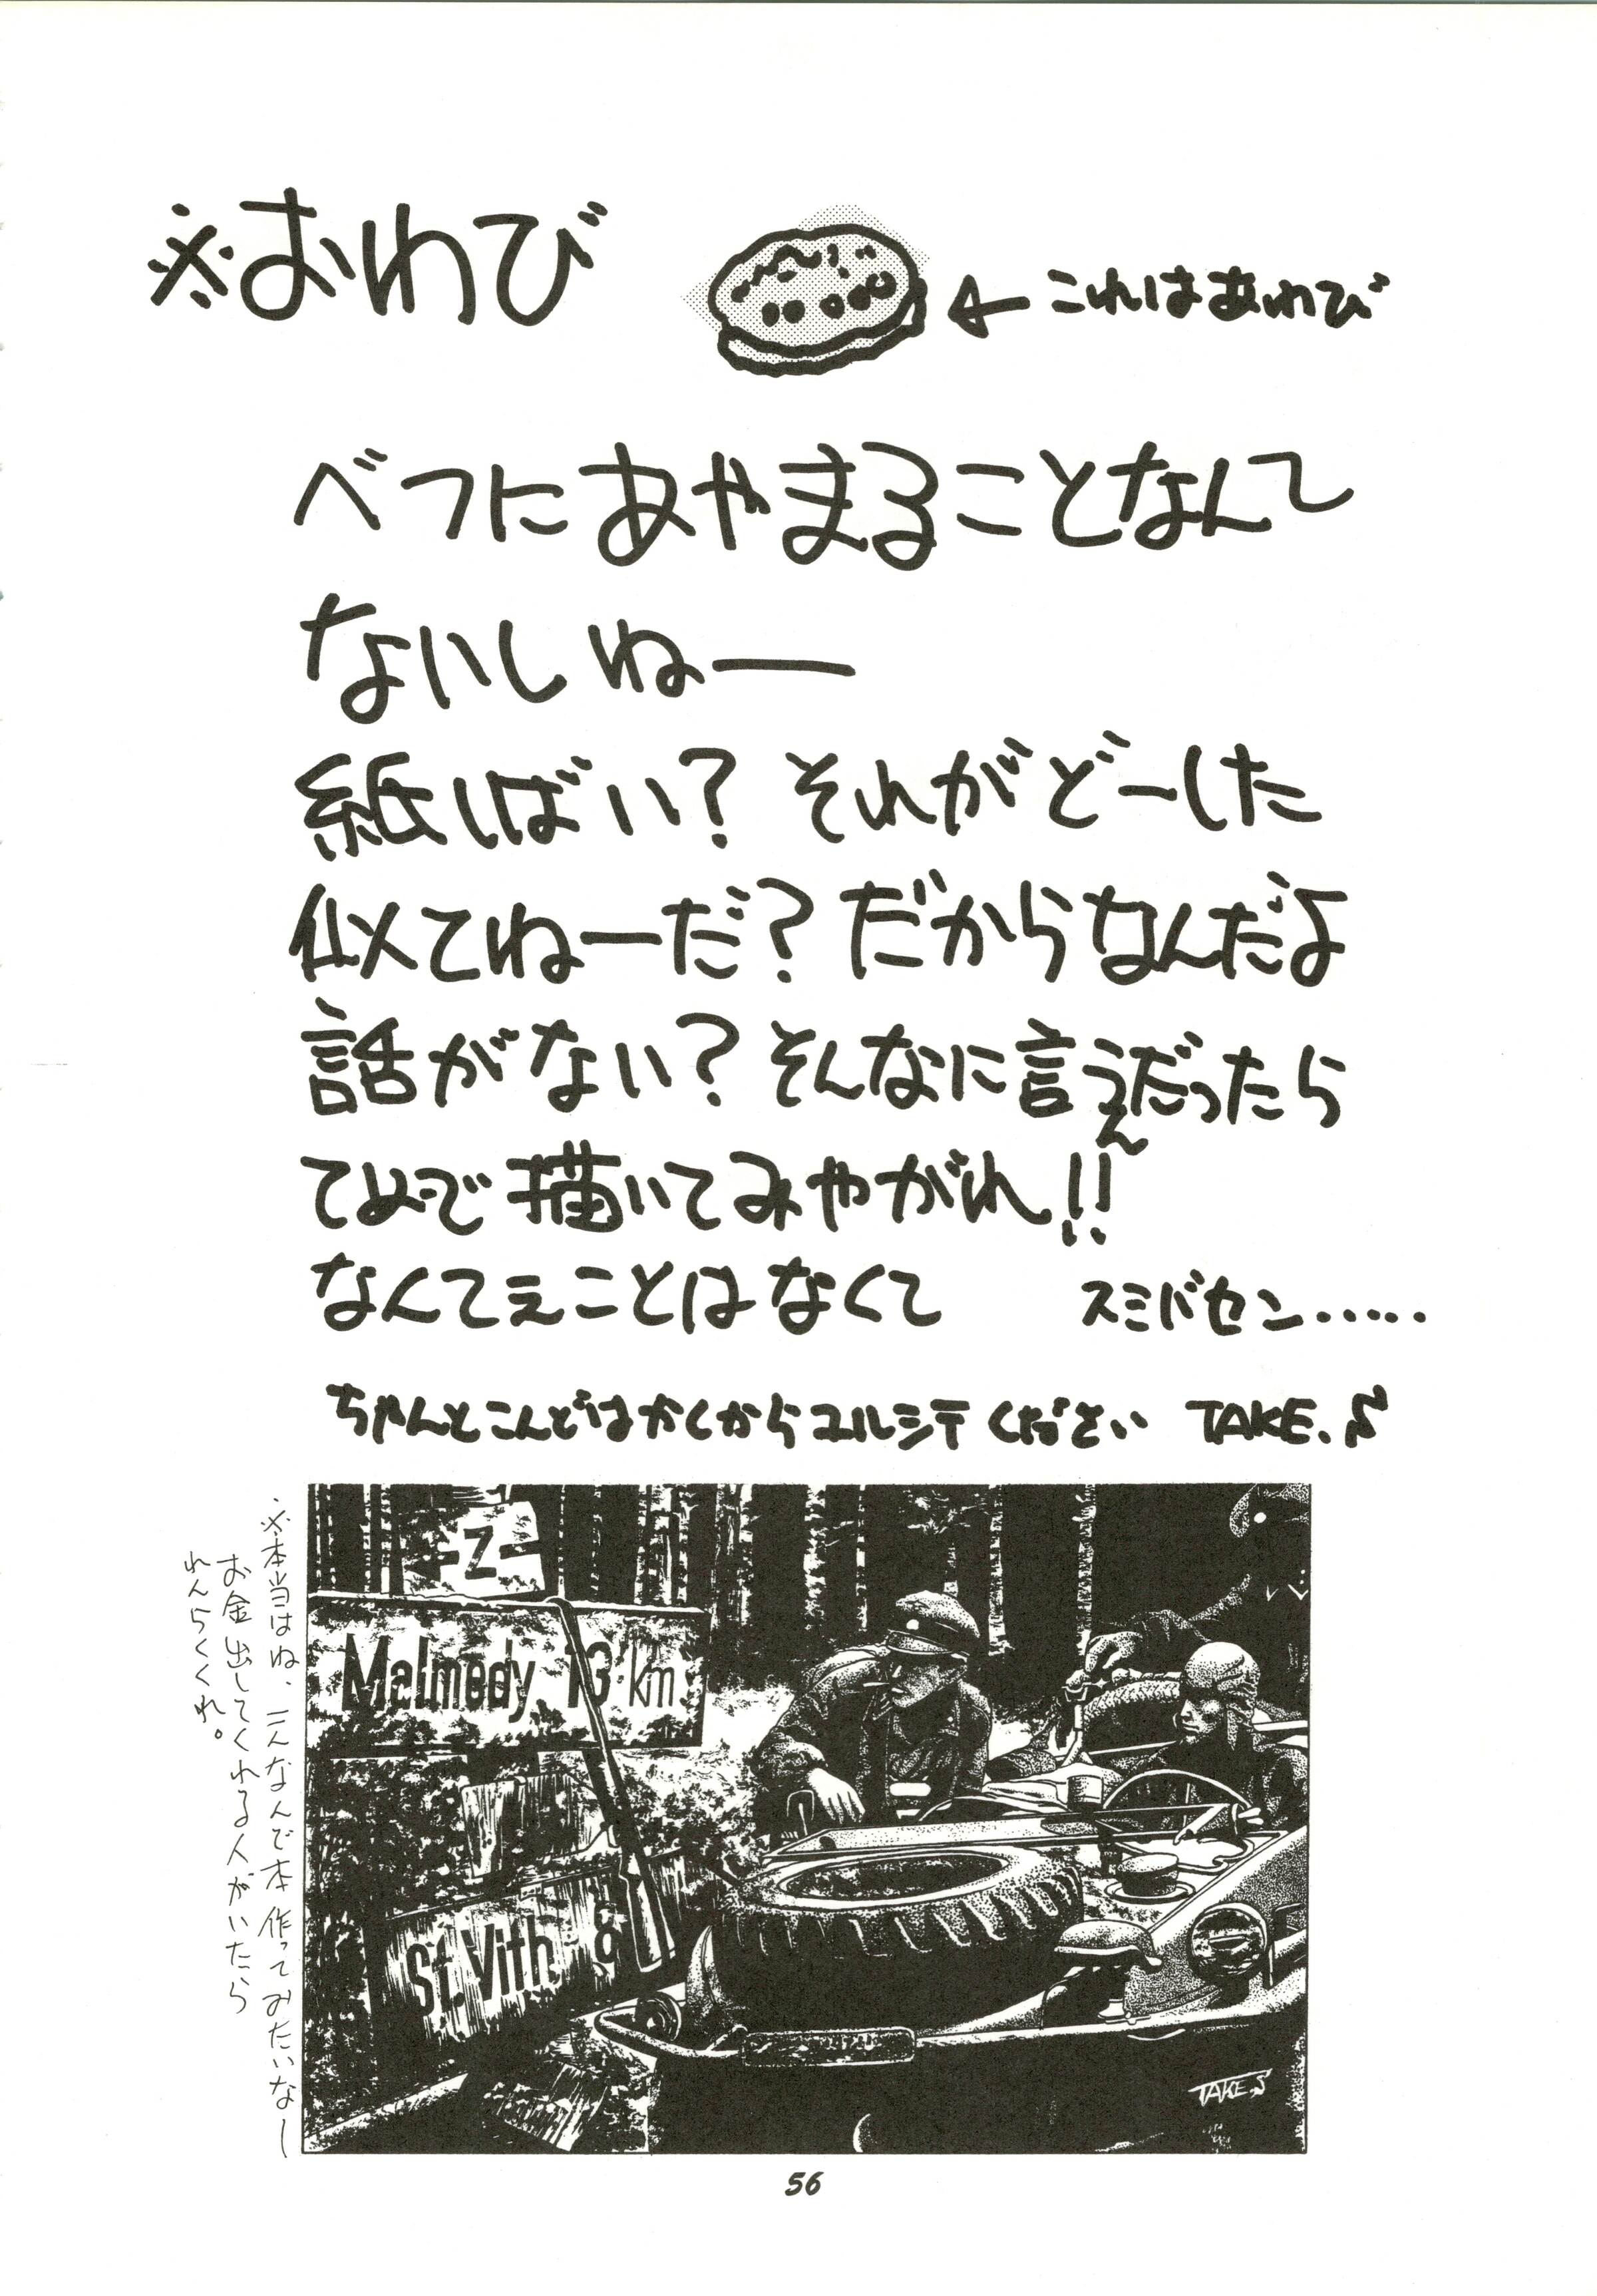 ※おわび
←これはあわび
べつにあやまることなんて
ないしねー
紙しばい?それがどーした
似てねーだ?だからなんだよ
話がない?そんなに言うんだったら
てめーで描いてみやがれ!!
なんてぇことはなくて スミバセン.....
ちゃんとこんどはかくからユルシテください TAKE.S
※本当はね、こんなんで本作ってみたいなー
お金出してくれる人がいたら
れんらくくれ。
-Z-
Malmedy 13 km
St.Vith 8
TAKE.S
56